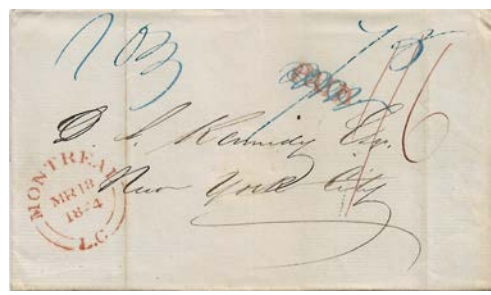 703
PAID
1/6
D S Kennedy Esq.
New York City
MONTREAL
MR 18
1854
L.C.